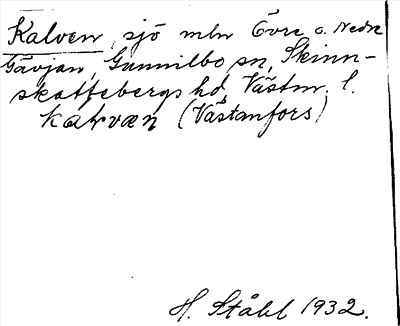 Kalven, sjö mln Övre o. Nedre
Gävjan, Gunnilbo sn, Skinn-
skattebergs hd, Västm. l.
kaɫvæn (Västanfors)
H. Ståhl 1932.